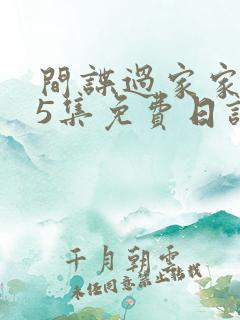 間諜過家家
5集免費日語
千月朝雲
未经同意禁止转载